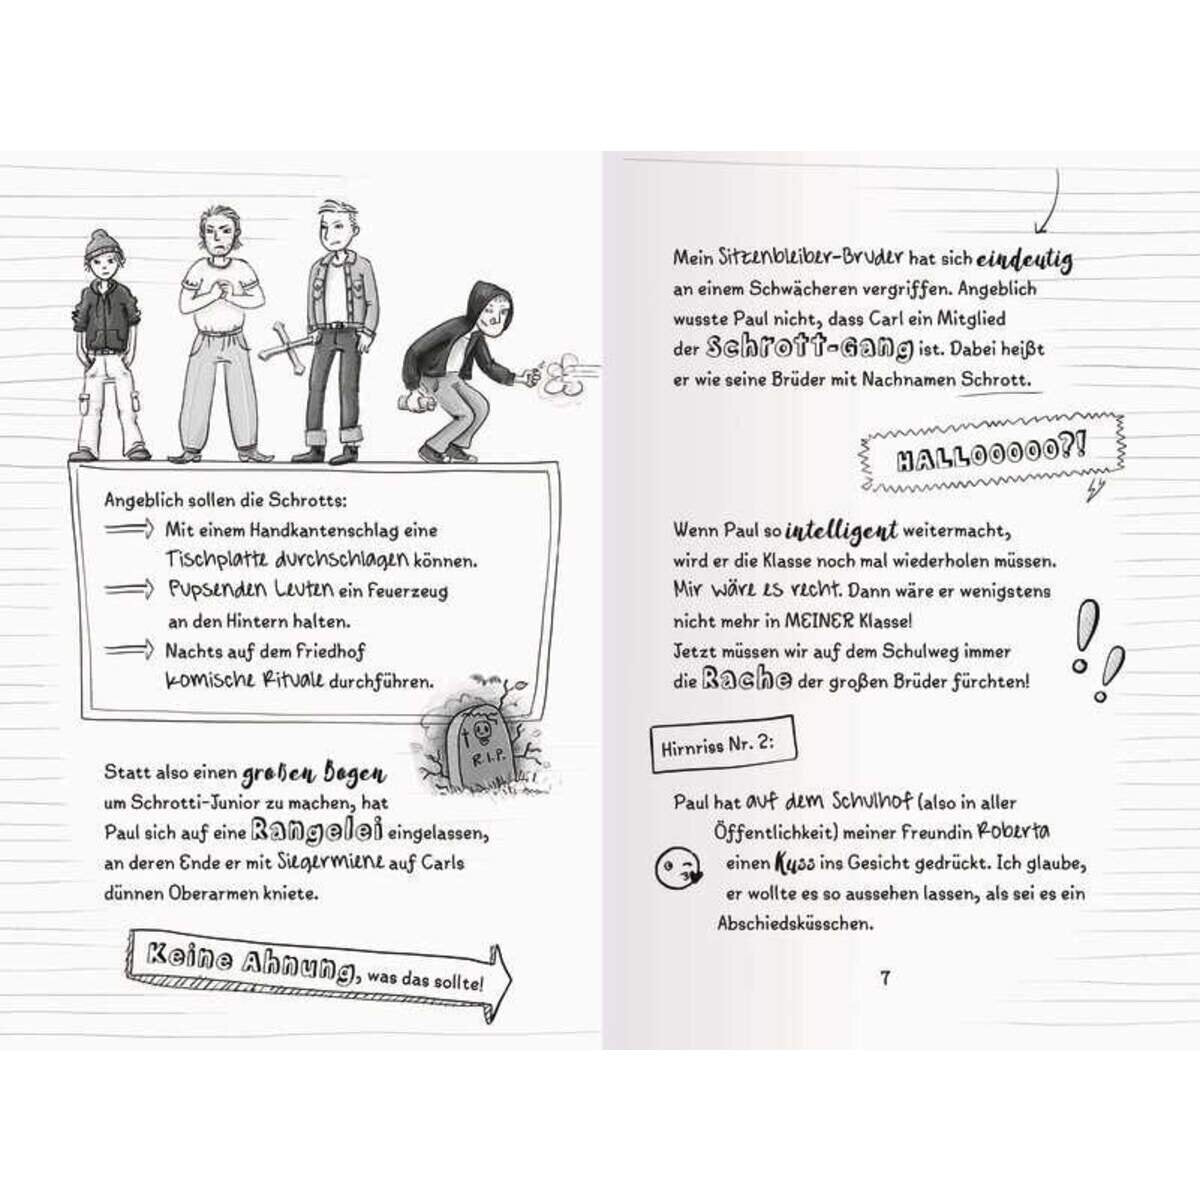 Angeblich sollen die Schrotts:
Mit einem Handkantenschlag eine
Tischplatte durchschlagen können.
Pupsenden Leuten ein Feuerzeug
an den Hintern halten.
Nachts auf dem Friedhof
komische Rituale durchführen.
R.I.P.
Statt also einen großen Bogen
um Schrotti-Junior zu machen, hat
Paul sich auf eine Rangelei eingelassen,
an deren Ende er mit Siegermiene auf Carls
dünnen Oberarmen kniete.
Keine Ahnung, was das sollte!
Mein Sitzenbleiber-Bruder hat sich eindeutig
an einem Schwächeren vergriffen. Angeblich
wusste Paul nicht, dass Carl ein Mitglied
der Schrott-Gang ist. Dabei heißt
er wie seine Brüder mit Nachnamen Schrott.
HALLOOOOO?!
Wenn Paul so intelligent weitermacht,
wird er die Klasse noch mal wiederholen müssen.
Mir wäre es recht. Dann wäre er wenigstens
nicht mehr in MEINER Klasse!
Jetzt müssen wir auf dem Schulweg immer
die Rache der großen Brüder fürchten!
Hirnriss Nr. 2:
Paul hat auf dem Schulhof (also in aller
Öffentlichkeit) meiner Freundin Roberta
einen Kuss ins Gesicht gedrückt. Ich glaube,
er wollte es so aussehen lassen, als sei es ein
Abschiedsküsschen.
7